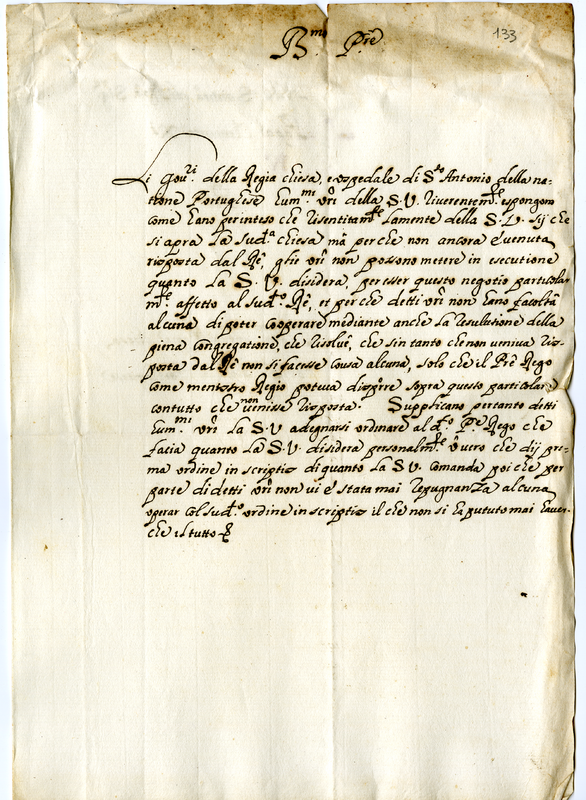 133
B.mo P.re
Li Gov.ri della Regia chiesa, e ospedale di S.to Antonio della na-
tione Portughese hum.mi ŏri della S. V. riverentem.te espongono
come hano per inteso che risentitam.te lamente della S. V. sij che
si apra la sud.a chiesa mà perche non ancora è venuta
risposta dal Rê, gli ŏri non possono metere in esecutione
quanto la S. V. disidera, per esser questo negotio particolar
m.te affetto al sud.o Rê, et perche detti ŏri non hano facoltà
alcuna di poter cooperare mediante anche la resulutione della
piena Congregatione, che risolvê, che sin tanto che non veniva ris-
posta dal Rê non si facesse cousa alcuna, solo che il Prê Rego
come menistro Regio poteva dispŏre sopra questo particolare
contutto che non venisse risposta. Supplicano pertanto detti
hum.mi ŏri la S. V. a degnarsi ordinare al d.o P.re Rego che
facia quanto la S. V. disidera personalm.te ŏvero che dij pri-
ma ordine in scriptis di quanto la S. V. comanda poi che per
parte di detti ŏri non vi è stata mai repugnanza alcuna
operar col sud.o ordine in scriptis il che non si ha potuto mai haver
che il tutto